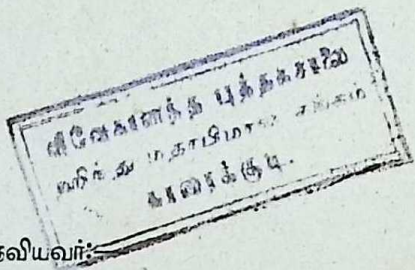 விவேகானந்த புத்தகசாலை
ஹிந்து மதாபிமான சங்கம்
காரைக்குடி.
தவியவர்: